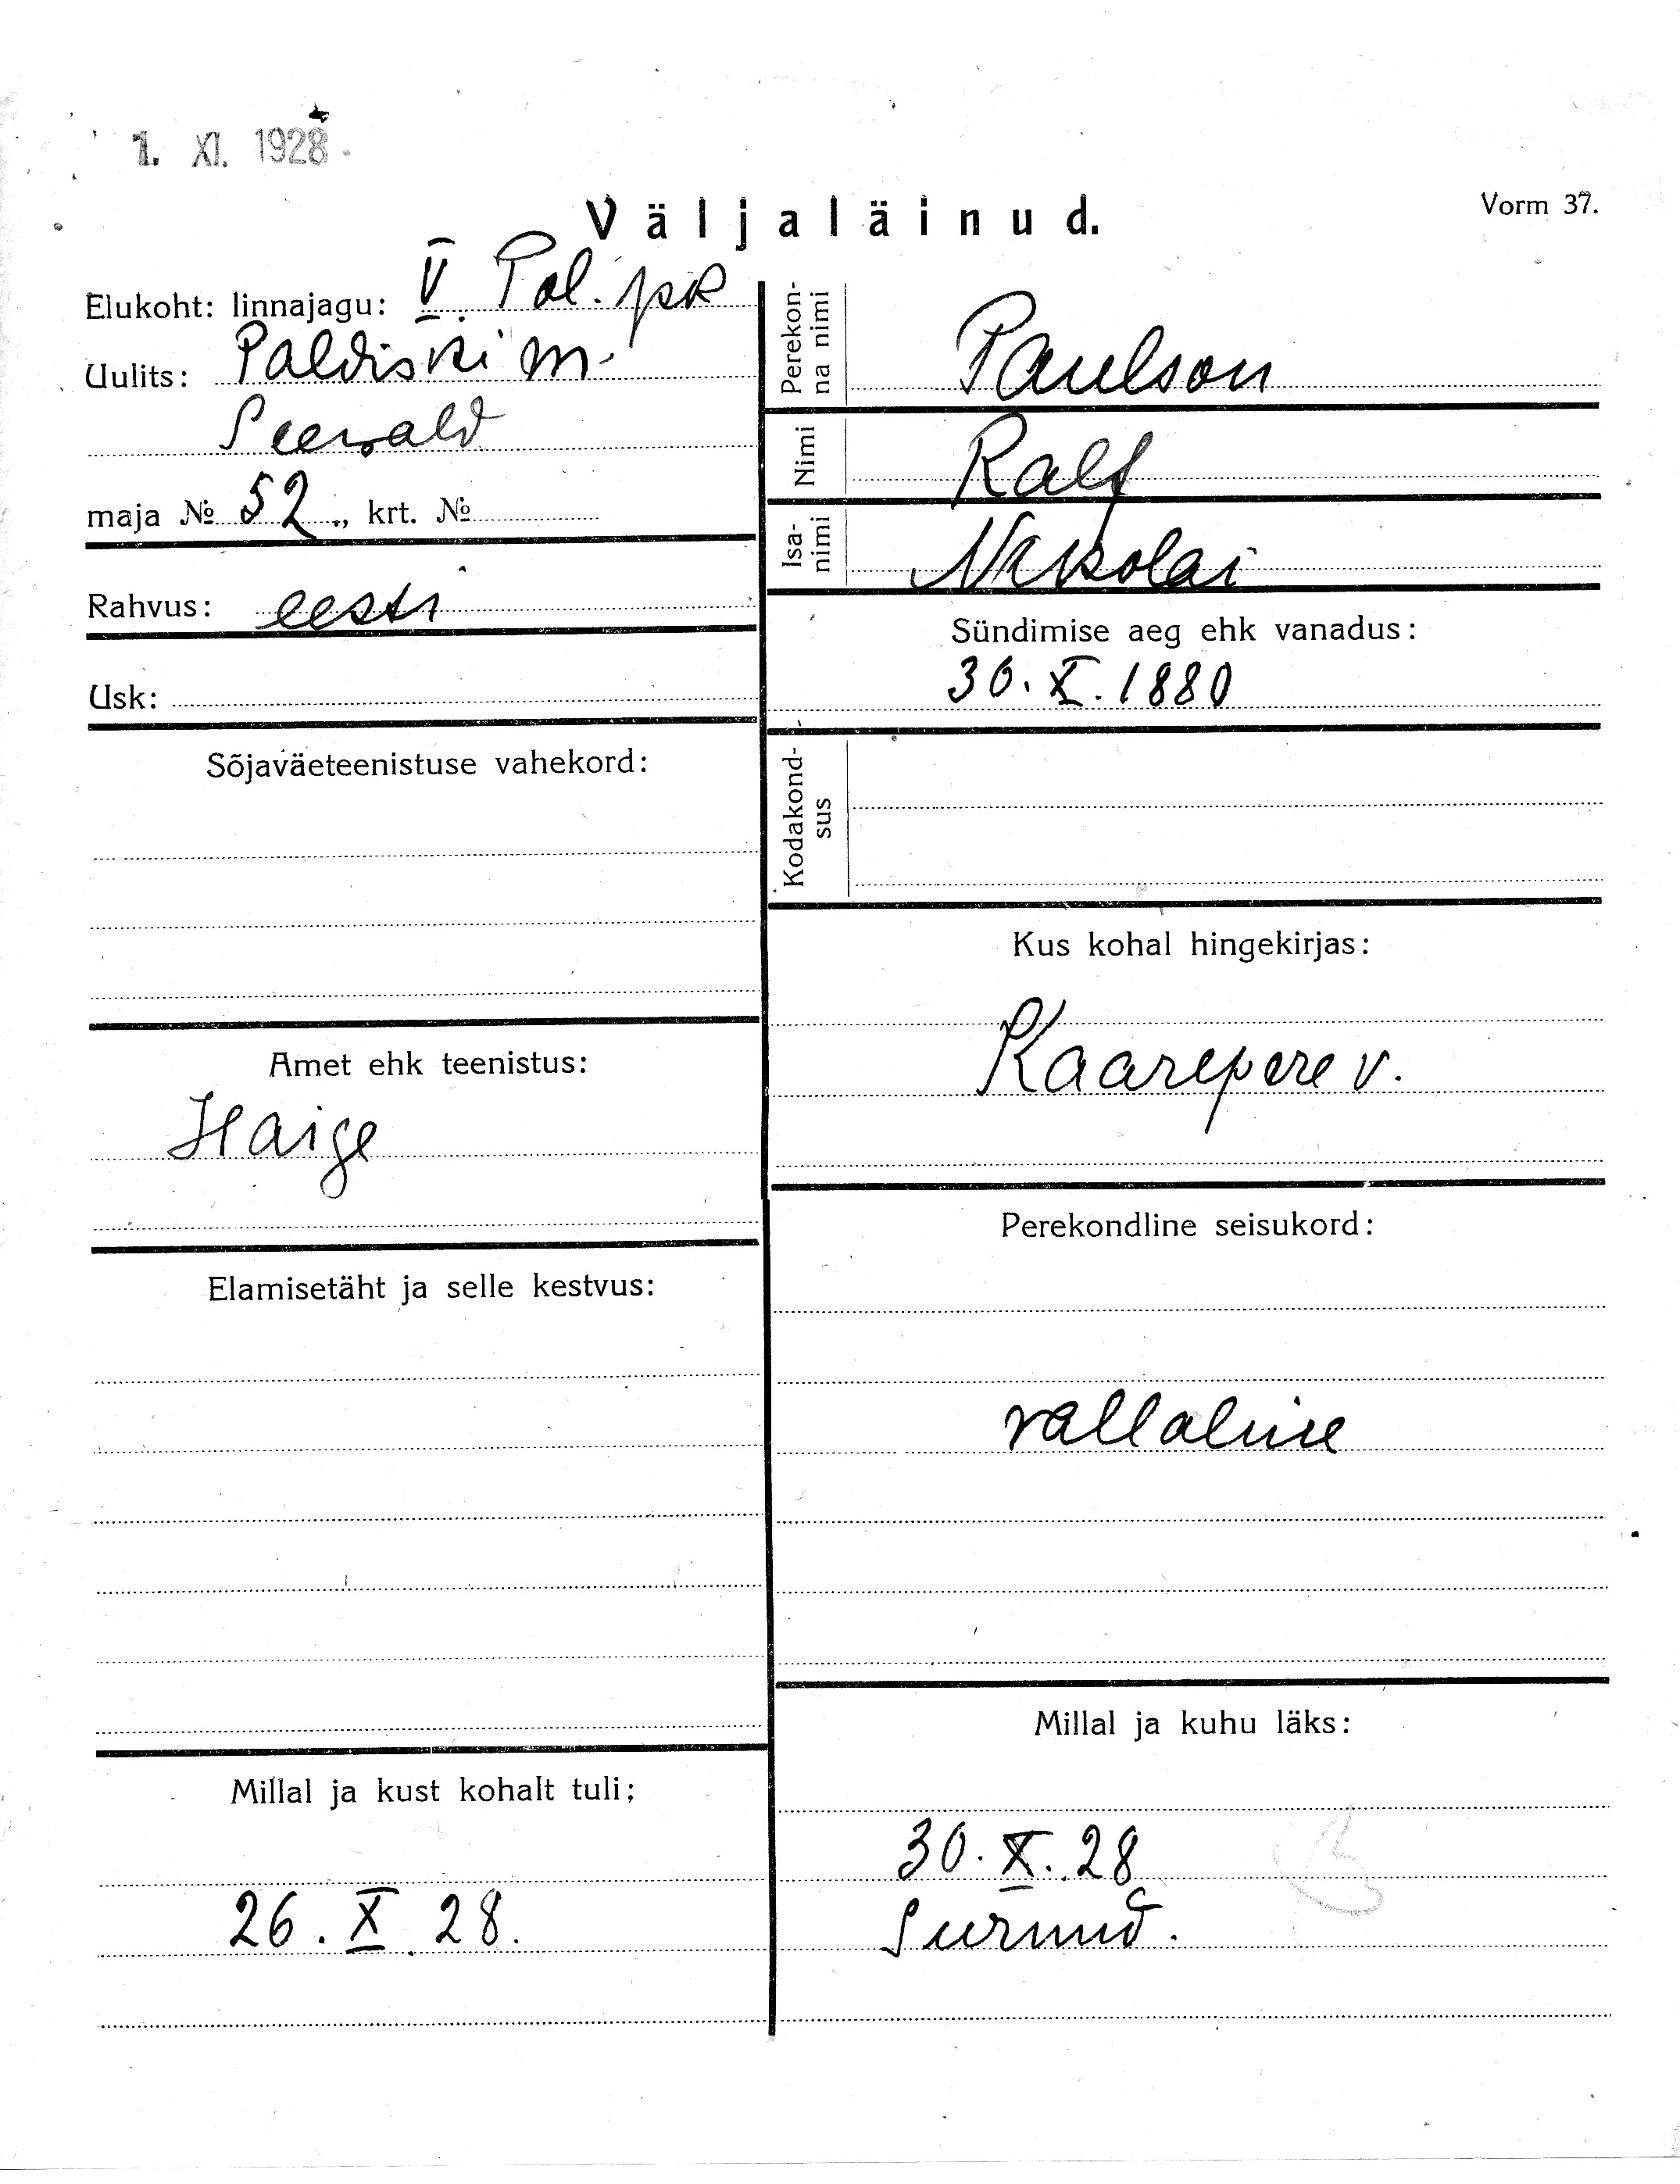 1. XI. 1928.
Väljaläinud.
Vorm 37.
Elukoht: linnajagu: V. Pol. jsk
Uulits: Paldiski m.
Seewald
maja № 52, krt. №
Rahvus: eesti
Usk:
Sõjaväeteenistuse vahekord:
Amet ehk teenistus:
Haige
Elamisetäht ja selle kestvus:
Millal ja kust kohalt tuli:
26. X. 28.
Perekon-
na nimi
Paulson
Nimi
Ralf
Isa-
nimi
Nikolai
Sündimise aeg ehk vanadus:
30. X. 1880
Kodakond-
sus
Kus kohal hingekirjas:
Kaarepere v.
Perekondline seisukord:
vallaline
Millal ja kuhu läks:
30. X. 28
Surnud.